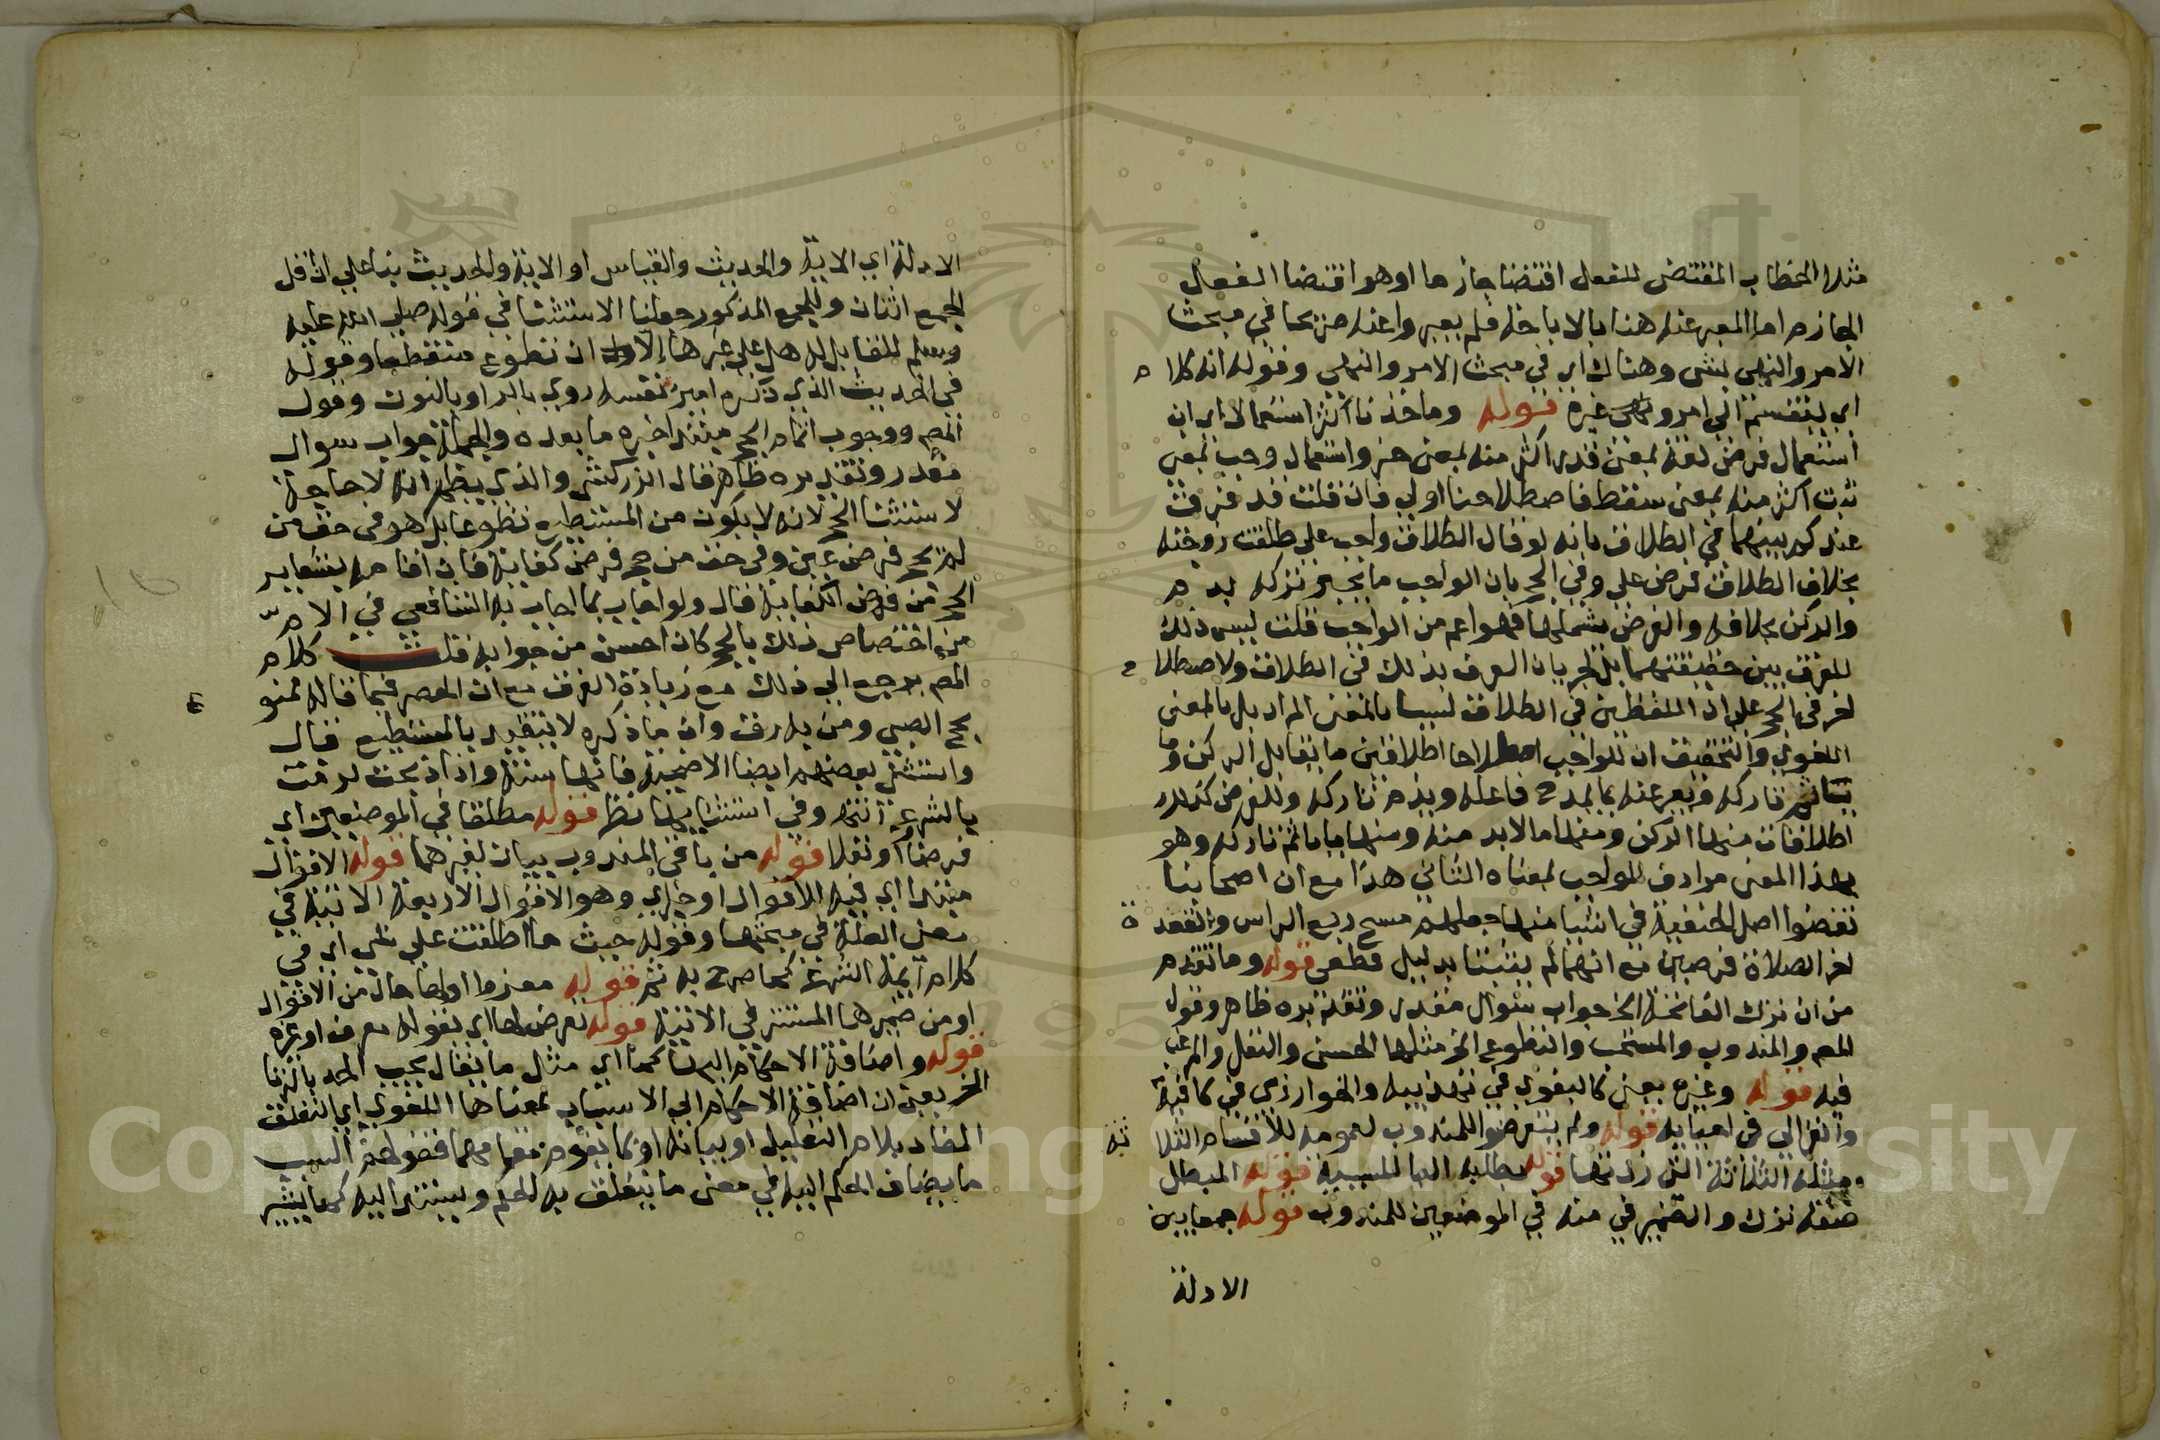 مثلا الخطاب المقتضى للفعل اقتضا جازما او هو اقتضا الفعل
الجازم اما المعبر عنه هنا بالاباحة فلم يعبروا عنه صريحا في مبحث
الامر والنهى بشى وهناك اي في مبحث الامر والنهى وقوله انه كلام
اي بتقسمة الى امر ونهى غيره قوله وماخذنا اكثر استعمالا اي ان
استعمال فرض لغة بمعنى قدر اكثر منه بمعنى حز واستعمال وجب بمعنى
ثبت اكثر منه بمعنى سقط فاصطلاحنا اولى فان قلت قد فرقت
عندكم بينهما في الطلاق بانه لو قال الطلاق واجب على طلقت زوجته
بخلاف الطلاق فرض علي وفي الحج بان الواجب ما يجبر تركه بدم
والركن بخلافه والفرض يشملهما فهو اعم من الواجب قلت ليس ذلك
للفرق بين حقيقتهما بل لجريان العرف بذلك في الطلاق ولاصطلاح
اخر في الحج على ان اللفظين في الطلاق ليسا بالمعنى المراد بل بالمعنى
اللغوي والتحقيق ان للواجب اصطلاحا اطلاقين ما يقابل الركن وما
ياثم تاركه ويعبر عنه بما يمدح فاعله ويذم تاركه وللفرض كذلك
اطلاقات منها الركن ومنها ما لا بد منه ومنها ما ياثم تاركه وهو
بهذا المعنى مرادف للواجب بمعناه الثاني هذا مع ان اصحابنا
نقضوا اصل الحنفية في اشيا منها جعلهم مسح ربع الراس والقعدة
اخر الصلاة فرضين مع انهما لم يثبتا بدليل قطعي قوله وما تقدم
من ان ترك الفاتحة الخ جواب سوال مقدر وتقديره ظاهر وقول
المص والمندوب والمستحب والتطوع الخ مثلها الحسن والنفل والمرغب
فيه قوله وغيره يعني كالبغوي في تهذيبه والخوارزمي في كافيه
والغزالي في احيايه قوله ولم يتعرضوا للمندوب لعمومه للاقسام الثلاثة
ومثله الثلاثة التى زدتها قوله بطلبه البا للسببية قوله المبطل
صفة ترك والضمير في منه في الموضعين للمندوب قوله جمعا بين
الادلة
الادلة اي الاية والحديث والقياس او الاية والحديث بنا على ان اقل
الجمع اثنان وللجمع المذكور جعلنا الاستثنا في قوله صلى الله عليه
وسلم للقايل له هل على غيرها الا ان تطوع منقطعا وقوله
في الحديث الذي ذكره امير نفسه روي بالرا وبالنون وقول
المص ووجوب اتمام الحج مبتدا خبره ما بعده والجملة جواب سوال
مقدر وتقديره ظاهر قال الزركشي والذي يظهر انه لا حاجة
لاستثنا الحج لانه لا يكون من المستطيع تطوعا بل هو في حق من
لم يحج فرض عين وفي حق من حج فرض كفاية فان اقامة شعاير
الحج من فروض الكفاية قال ولو اجاب بما اجاب به الشافعي في الام
من اختصاص ذلك بالحج كان احسن من جوابه قلت كلام
المص يرجع الى ذلك مع زيادة الفرق مع ان الحصر فيما قاله ممنوع
بحج الصبي ومن به رق وان ما ذكره لا يتقيد بالمستطيع قال
واستثنى بعضهم ايضا الاضحية فانها سنة واذا ذبحت لزمت
بالشرع انتهى وفي استثنايها نظر قوله مطلقا في الموضعين اي
فرضا او نفلا قوله من باقي المندوب بيان لغيرهما قوله الاقوال
مبتدا اي فيه الاقوال او خبر وهو الاقوال الاربعة الاتية في
معنى العلة في مبحثها وقوله حيث ما اطلقت على شي اي في
كلام ايمة الشرع كما صرح به ثم قوله معزوا اولها حال من الاقوال
او من ضميرها المستتر في الاتية قوله تعرض لها اي بقوله معرف او غيره
قوله واضافة الاحكام اليها كما اي مثال ما يقال يجب الحد بالزنا
الخ يعني ان اضافة الاحكام الى الاسباب بمعناها اللغوي اي التعلق
المفاد بلام التعليل او ببايه او بما يقوم مقامهما فقولهم السبب
ما يضاف الحكم اليه في معنى ما يتعلق به الحكم ويستند اليه كما يشير